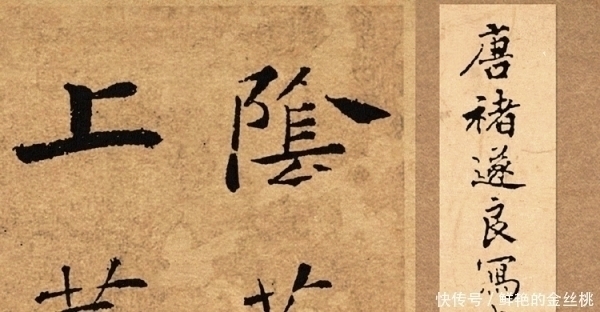 唐褚遂良寫
陰
上
快传号 / 鲜艳的金丝桃